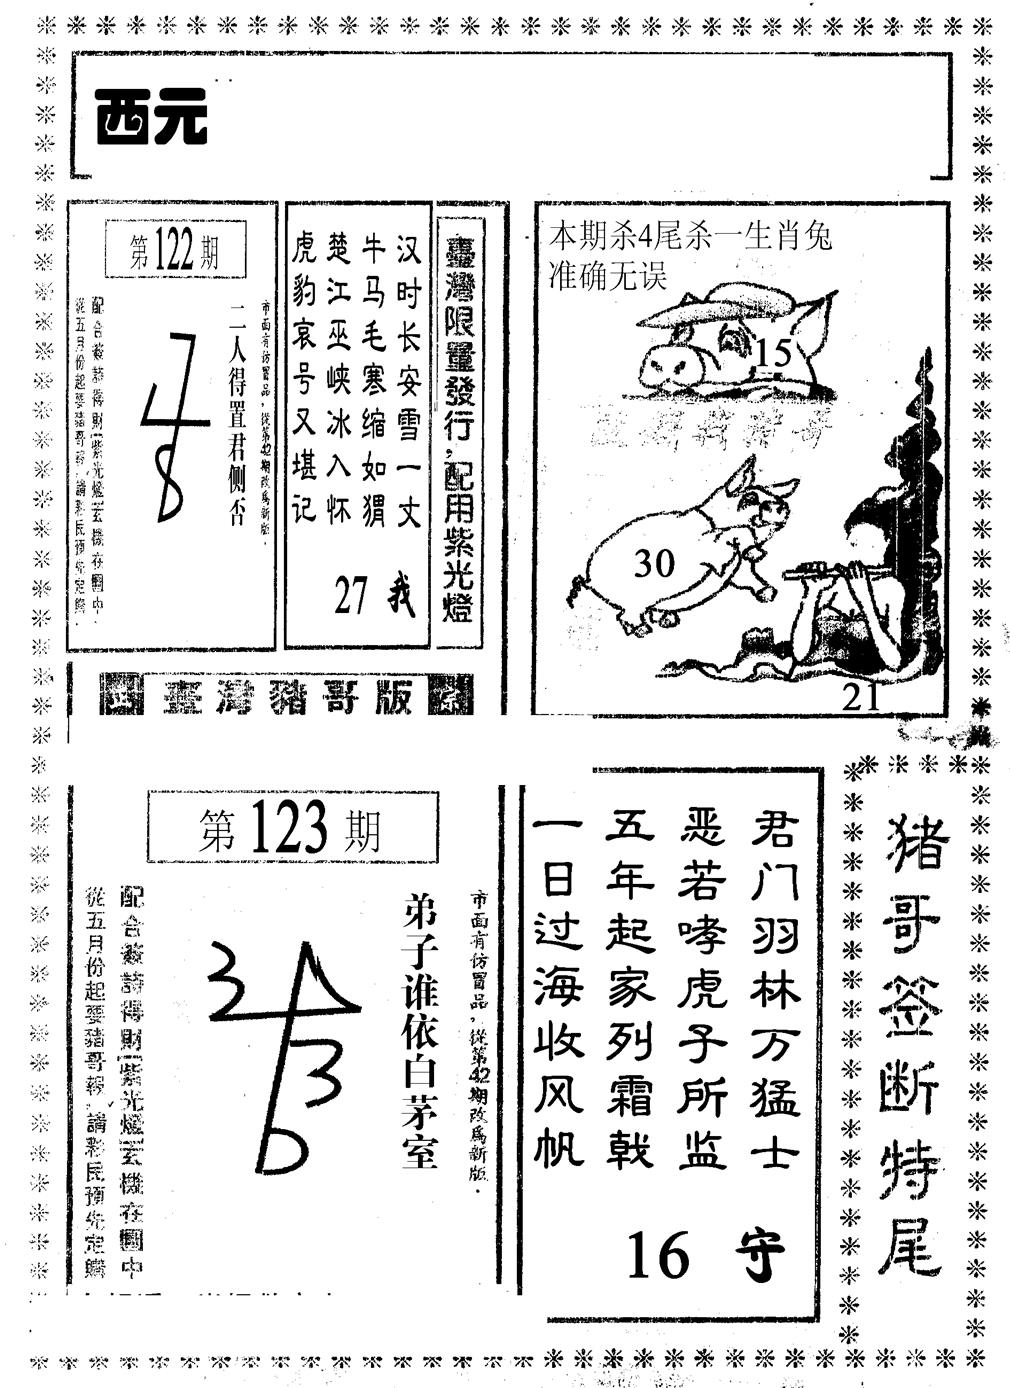 西元
第122期
市面有仿冒品，從第42期改爲新版．
二人得置君侧否
配合簽詩得財紫光燈玄機在圖中．
從五月份起要豬哥報，請彩民預先定購．
汉时长安雪一丈
牛马毛寒缩如猬
楚江巫峡冰入怀
虎豹哀号又堪记
27 我
臺灣限量發行，配用紫光燈
臺灣豬哥版
本期杀4尾杀一生肖兔
准确无误
15
30
21
第123期
市面有仿冒品，從第42期改爲新版．
弟子谁依白茅室
3
3
配合簽詩得財紫光燈玄機在圖中
從五月份起要豬哥報，請彩民預先定購
君门羽林万猛士
恶若哮虎子所监
五年起家列霜戟
一日过海收风帆
16 守
猪哥签断特尾